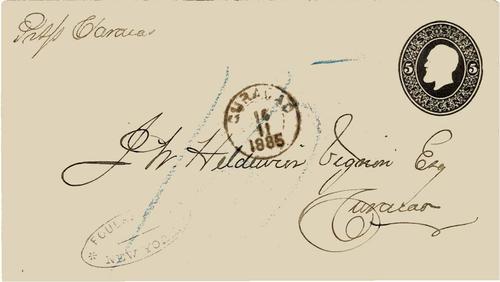 Pr S/S Caracas
5 5
CURAÇAO
16
11
1885
J. W. Heldewier Vignon Esq
Curacao
* FOUL
NEW YORK